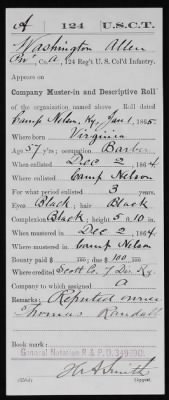 A 124 U.S.C.T.
Washington Allen
Pvt., Co. A, 124 Reg't U. S. Col'd Infantry.
Appears on
Company Muster-in and Descriptive Roll
of the organization named above. Roll dated
Camp Nelson, Ky, Jan 1, 1865.
Where born Virginia
Age 57 y'rs; occupation Barber
When enlisted Dec 2, 1864
Where enlisted Camp Nelson
For what period enlisted 3 years.
Eyes Black; hair Black
Complexion Black; height 5 ft. 10 in.
When mustered in Dec 2, 1864
Where mustered in Camp Nelson
Bounty paid $ 100; due $ 100
Where credited Scott Co. 7 Dis. Ky.
Company to which assigned A
Remarks: Reputed owner
Thomas Randall
Book mark:
General Notation R & P. D.
H A Smith
Copyist.